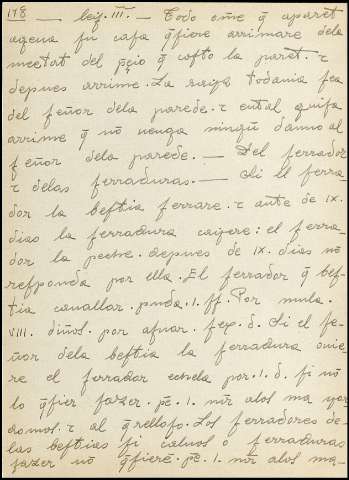 118 — leig. III. — Todo ome q̃ aparet
agena fu cafa q̃fiere arrimare dela
meetat del p̃çio q̃ cofto la paret. τ
depues arrime. La rayz todauia fea
del feñor dela parede. τ en tal guifa
arrime q̃ nõ uenga ningũ danno al
feñor dela parede. — Del ferrador
τ delas ferraduras. — Si el ferra-
dor la beftia ferrare. τ ante de IX.
dias la ferradura cayere: el ferra-
dor la peche. depues de IX. dias nõ
refponda por ella. El ferrador q̃ bef-
tia cauallar. prnda. I. ff. Por mula.
VIII. dinos. por afnar. fex. d. Si el fe-
ñor dela beftia la ferradura ouie-
re el ferrador echela por. I. d. fi nõ
lo q̃fier fazer. pc̃. I. mr̃ alos ma yor
domos. τ al q̃rellofo. Los ferradores de-
las beftias fi clauos o ferraduras
fazer nõ q̃fierẽ. pc̃. I. mr̃ alos ma-